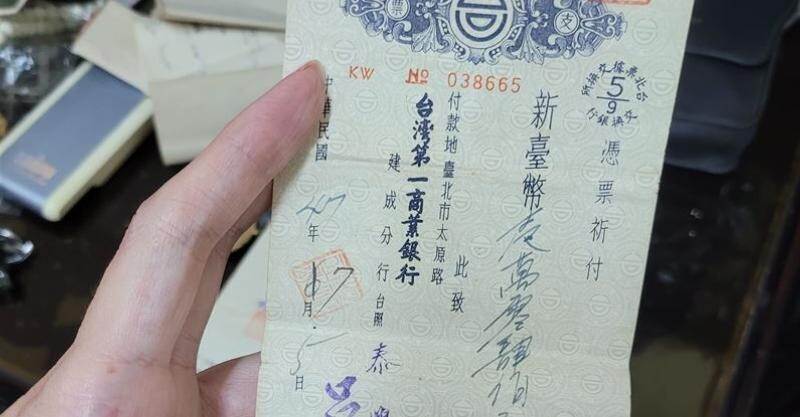 支票
KW № 038665
台北票據交換所
5/9
交換銀行
憑票祈付
新臺幣
萬零肆佰
此致
付款地臺北市太原路
台灣第一商業銀行
建成分行台照
中華民國47年
7月5日
泰